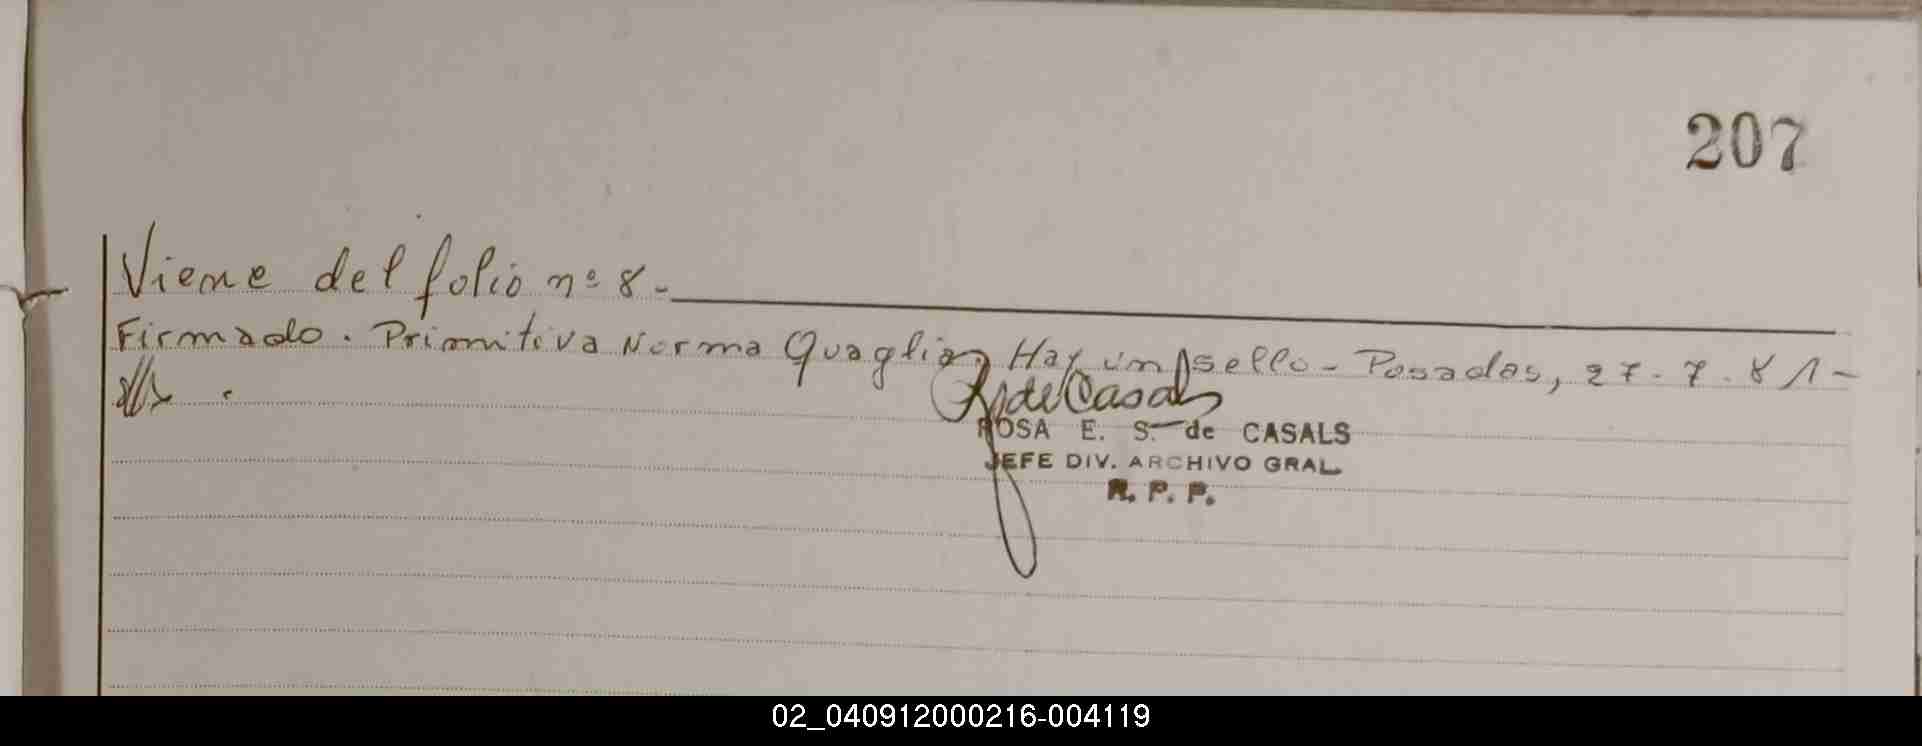 207
Viene del folio nº 8.-
Firmado. Primitiva Norma Quaglia, Hay un sello - Posadas, 27-7-81-
R. de Casals
ROSA E. S. de CASALS
JEFE DIV. ARCHIVO GRAL.
R. P. P.
02_040912000216-004119